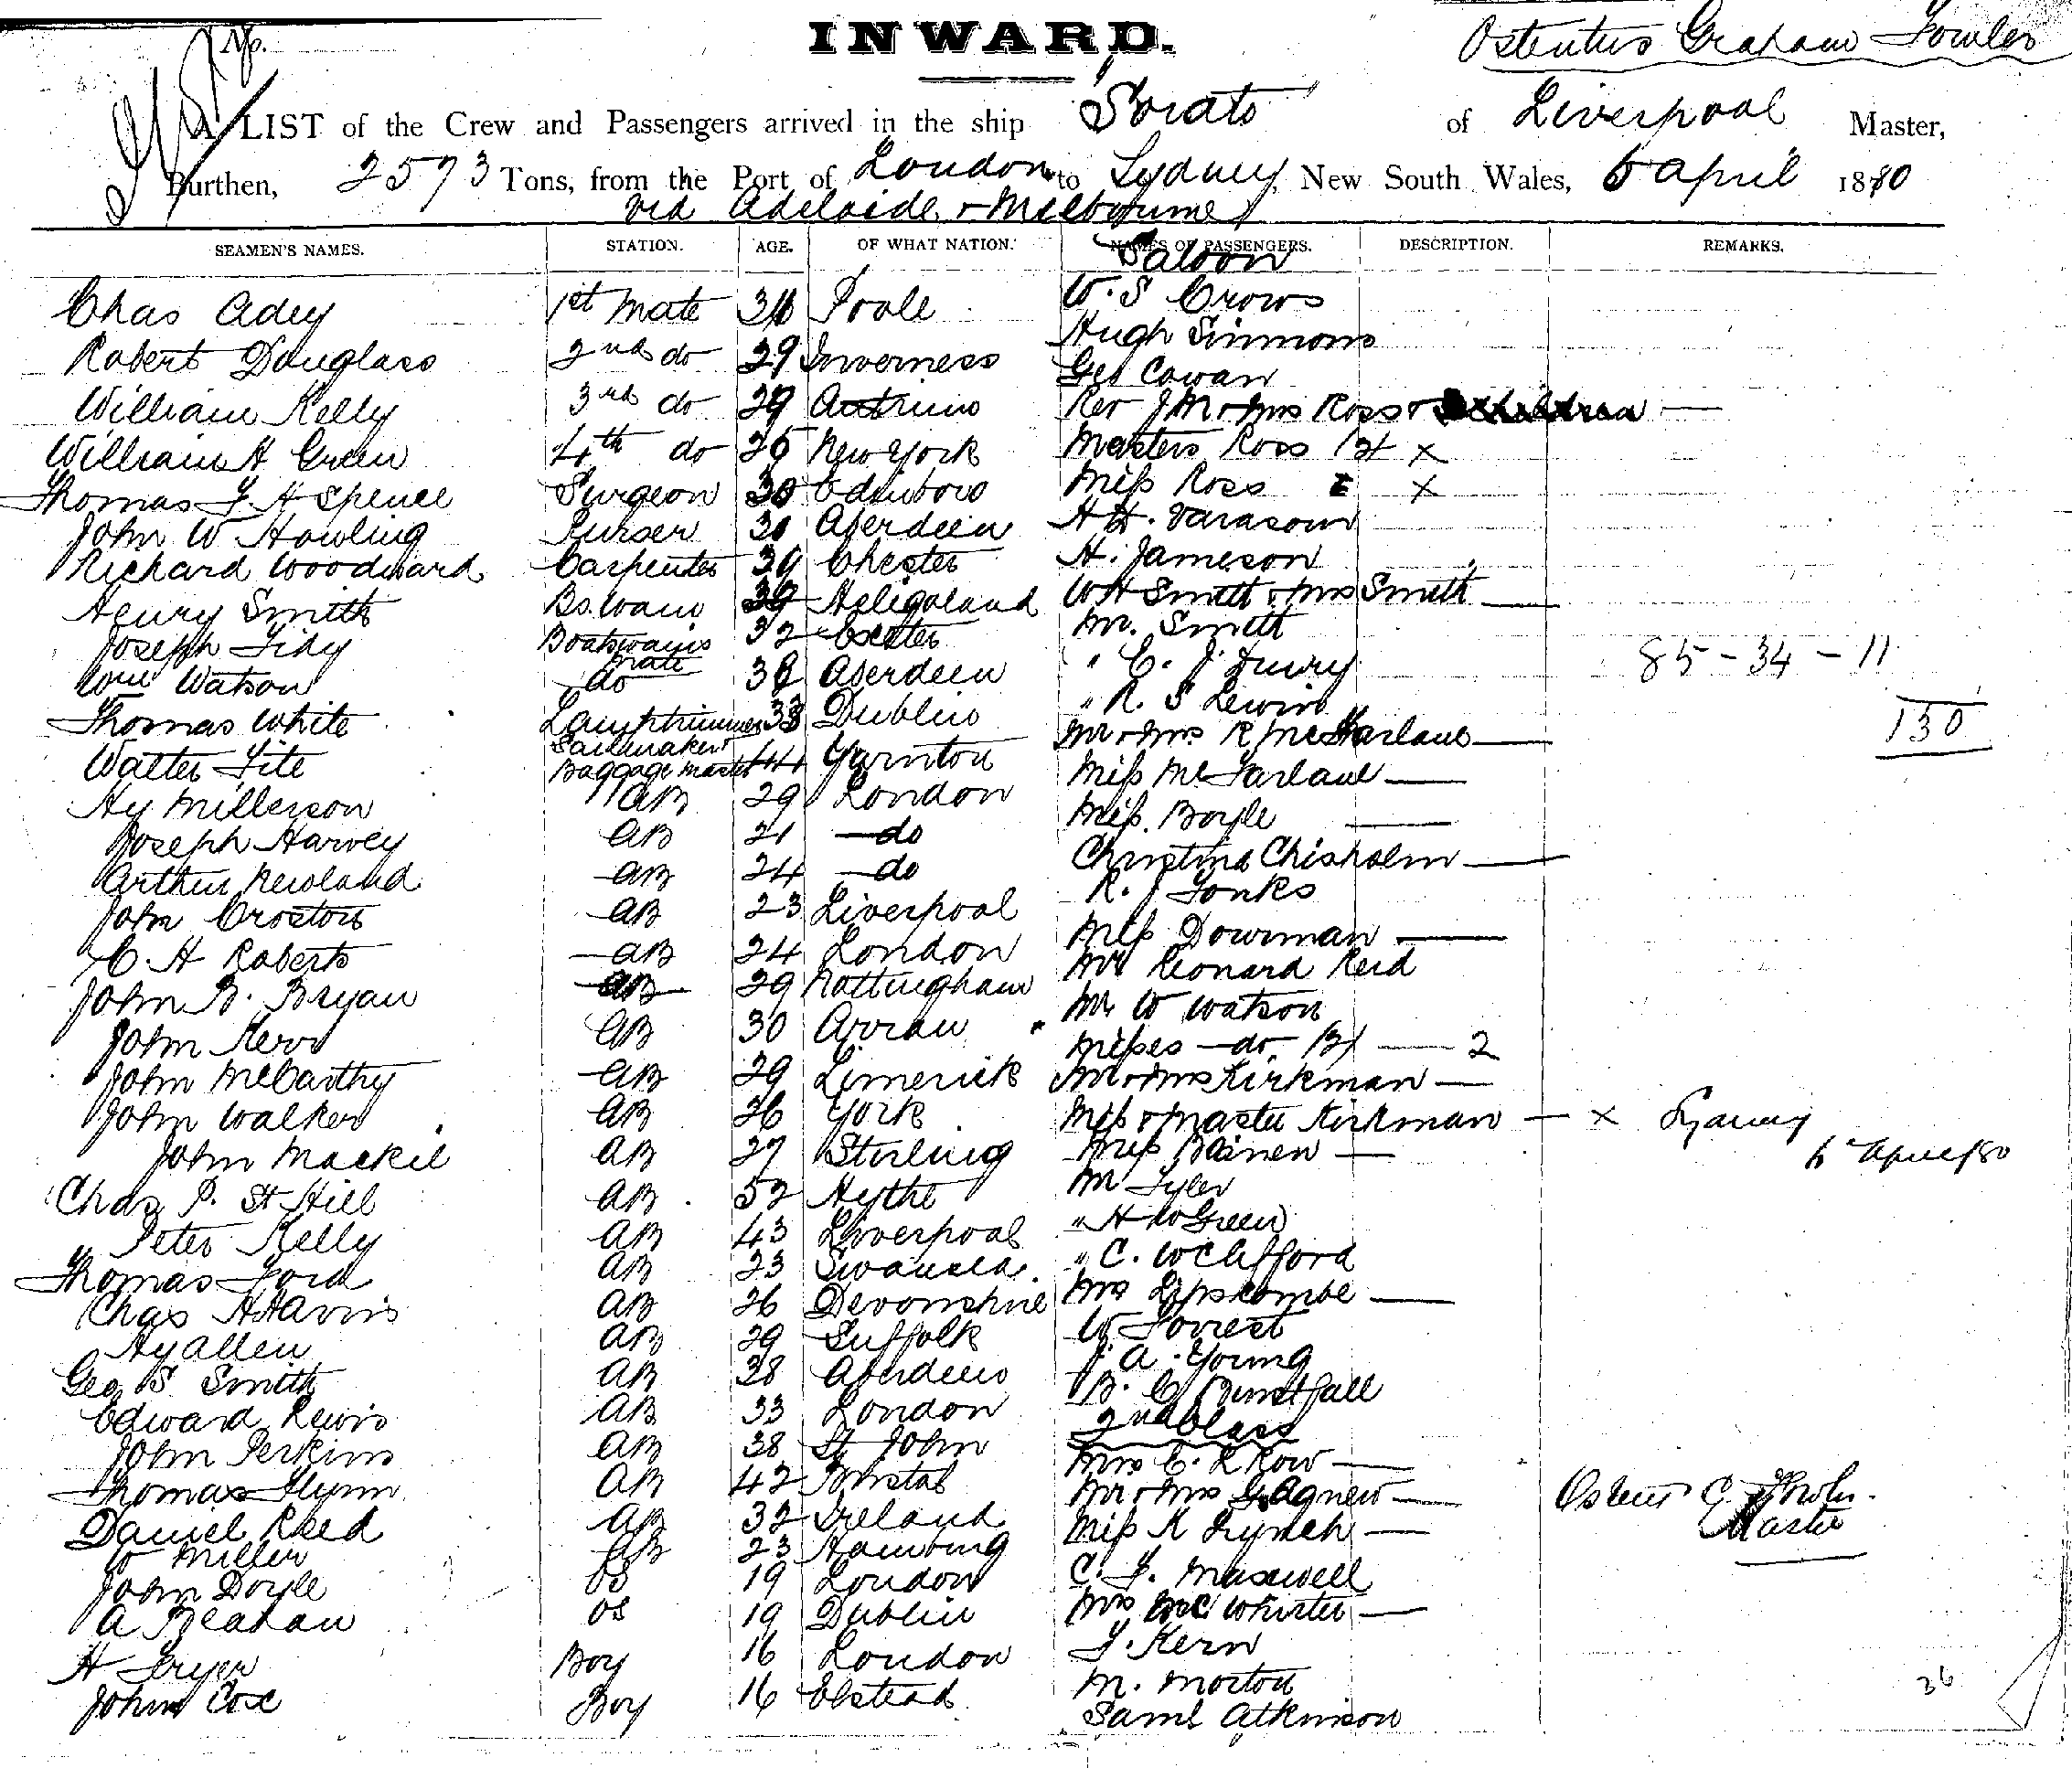 No.
INWARD.
Ostentus Graham Fowler
A LIST of the Crew and Passengers arrived in the ship "Sorata" of Liverpool Master,
Burthen, 2573 Tons, from the Port of London to Sydney, New South Wales, 5 April 1880
via Adelaide & Melbourne
SEAMEN'S NAMES. STATION. AGE. OF WHAT NATION. NAMES OF PASSENGERS. DESCRIPTION. REMARKS.
Saloon
Chas Adey 1st Mate Poole W. S Crows
Robert Douglass 2nd do 29 Inverness Hugh Simmons
William Kelly 3rd do 29 Antrim Geo Cowan
Rev J M & Mrs Ross &
William H Green 4th do New York Masters Ross x
Thomas F. H Spence Surgeon 30 Edinboro Miss Ross x
John W Howling Purser Aberdeen
Richard Woodward Carpenter Chester H. Jameson
Henry Smith Bo.wain Heligoland W H Smith & Mrs Smith —
Joseph Tidy Boatswains Mate 32 Exeter Mr. Smith
Wm Watson do Aberdeen
85 - 34 - 11
Thomas White Lamptrimmer 33 Dublin " R. S Lewin
130
Walter Tite Sailmaker Baggage Master 44 Yarnton Mr & Mrs R McFarlane —
Hy Millerson AB 29 London Miss McFarlane —
Joseph Harvey AB 21 — do Miss. Boyle —
Arthur Newland AB 24 — do Christina Chisholm —
John Croston AB 23 Liverpool R. J Tonks
C. H Roberts AB 24 London Miss Dowman —
John B. Bryan AB 29 Nottingham Mr Leonard Reid
John Kerr AB 30 Arran Mr W Watson
John McCarthy AB 29 Limerick Misses — do — 2
Mr & Mrs Kirkman —
John Walker AB 26 York Miss & Master Kirkman — x Sydney
John Mackie AB 27 Sterling Miss —
April/80
Chas P. St Hill AB 52 Hythe Mr Tyler
Peter Kelly AB 43 Liverpool " H W Green
Thomas Ford AB 23 Swansea. " C. W Clifford
Chas H Harris AB 26 Devonshire Mrs Lipscombe —
Hy Allen AB 29 Suffolk W. Forrest
Geo. S. Smith AB 38 Aberdeen J. A. Young
Edward Lewis AB 33 London
2nd Class
John Perkins AB 38 St John Mrs E. R Row —
Thomas Flynn AB 42 Bristol Mr & Mrs Agnew —
Daniel Reed AB 32 Ireland Miss K Lynch —
Master
W Miller AB 23 Hamburg C. F. Maxwell
John Doyle OS 19 London Mrs McWhirter —
A Beahan OS 19 Dublin T. Kern
H Fryer Boy 16 London M. Morton
John Cox Boy 16 Elstead Saml Atkinson
36